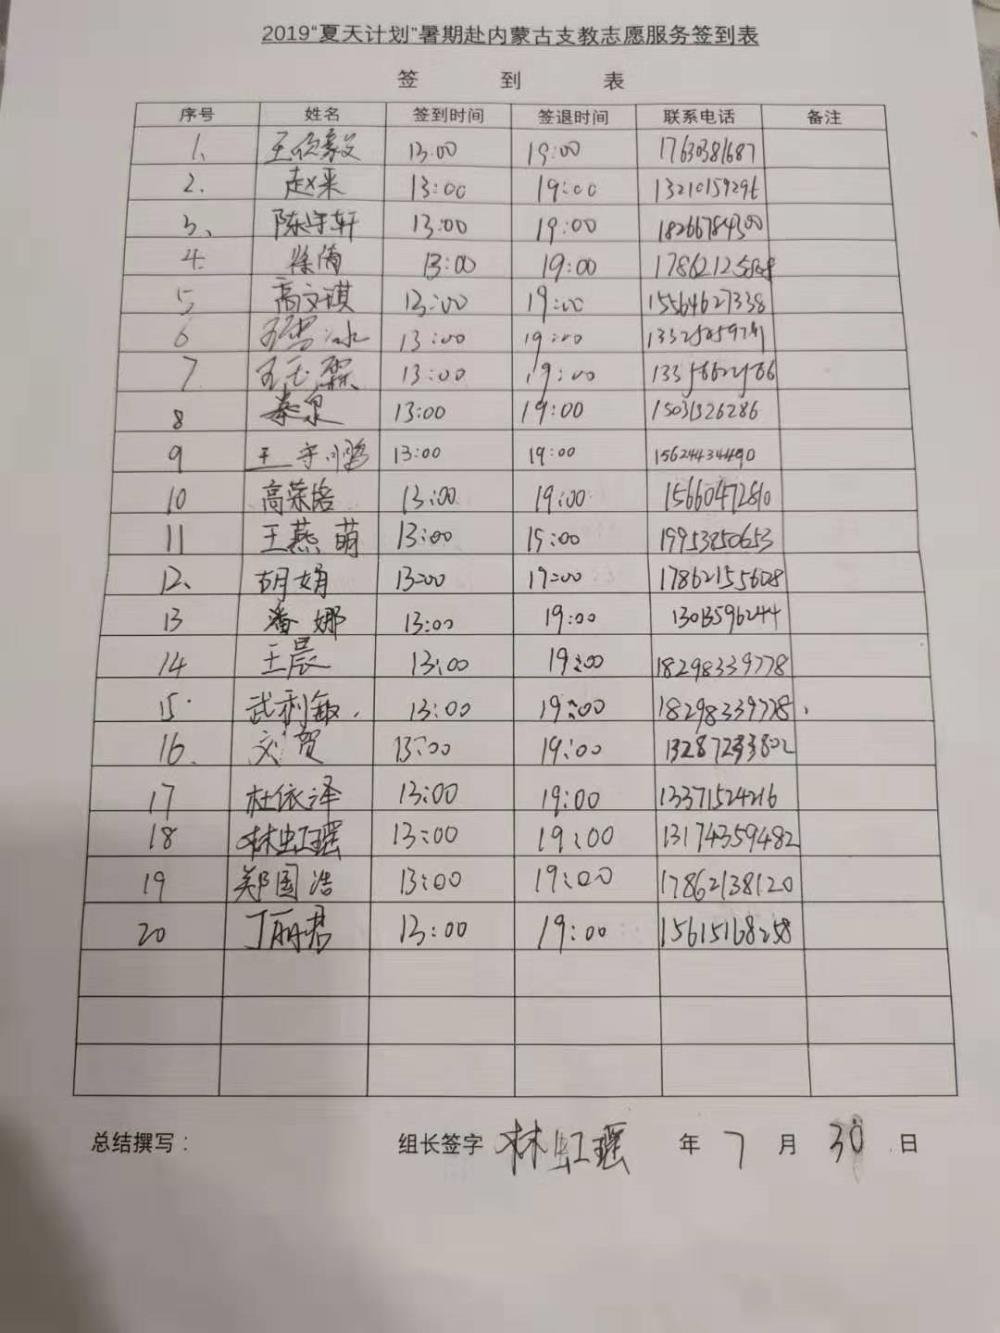 2019“夏天计划”暑期赴内蒙古支教志愿服务签到表
签 到 表
序号 姓名 签到时间 签退时间 联系电话 备注
1、 13:00 19:00 17630381687
2. 赵采 13:00 19:00 13210159296
3、 陈守轩 13:00 19:00 18266784300
4. 徐倩 13:00 19:00
5 高文琪 13:00 19:00 15564627338
6 13:00 19:00
7 13:00 19:00
8 秦泉 13:00 19:00 15031326286
9 王宇鹏 13:00 19:00 15624434490
10 13:00 19:00 15660472810
11 王燕萌 13:00 19:00 19953250653
12、 胡娟 13:00 19:00 17862155608
13 潘娜 13:00 19:00
14 王晨 13:00 19:00 18298339778
15. 武利敏. 13:00 19:00 18298339778.
16. 刘贺 13:00 19:00 13287233802
17 杜依泽 13:00 19:00 13371524216
18 林虹瑶 13:00 19:00 13174359482
19 郑国浩 13:00 19:00 17862138120
20 丁丽君 13:00 19:00 15615168258
总结撰写： 组长签字 林虹瑶 年 7 月 30 日